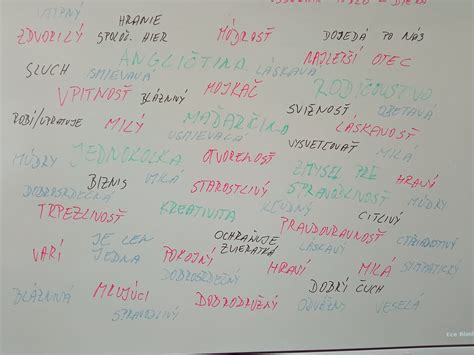 VTIPNÝ
HRANIE
ZDVORILÝ SPOLOČ. HIER MÚDROSŤ DOJEDÁ PO NÁS
ANGLIČTINA NAJLEPŠÍ OTEC
SLUCH USMIEVAVÁ LÁSKAVÁ
VPITNOSŤ BLÁZNIVÝ MOJKAČ RODIČOVSTVO
SVIŽNOSŤ OBETAVÁ
ROBÍ/UPRATUJE MILÝ MAĎARČINA LÁSKAVOSŤ
USMIEVAVÁ VYSVETĽOVAŤ MILÁ
MÚDRY JEDNOKOLKA OTVORENOSŤ ZMYSEL PRE HRAVÝ
DOBROSRDEČNÁ BIZNIS MILÁ STAROSTLIVÝ SPRAVODLIVOSŤ MÚDRY
TRPEZLIVOSŤ KREATIVITA KĽUDNÝ CITLIVÝ
PRAVDOVRAVNOSŤ
VARÍ JE LEN JEDNA POKOJNÝ OCHRAŇUJE ZVIERATKÁ LÁSKAVÝ CTIŽIADOSTIVÝ
DOBROSRDEČNÝ HRAVÝ MILÁ SYMPATICKÝ
BLÁZNIVÁ MILUJÚCI DOBRODRUŽNÝ DOBRÝ ČUCH
SPRAVODLIVÝ ODVÁŽNY VESELÁ